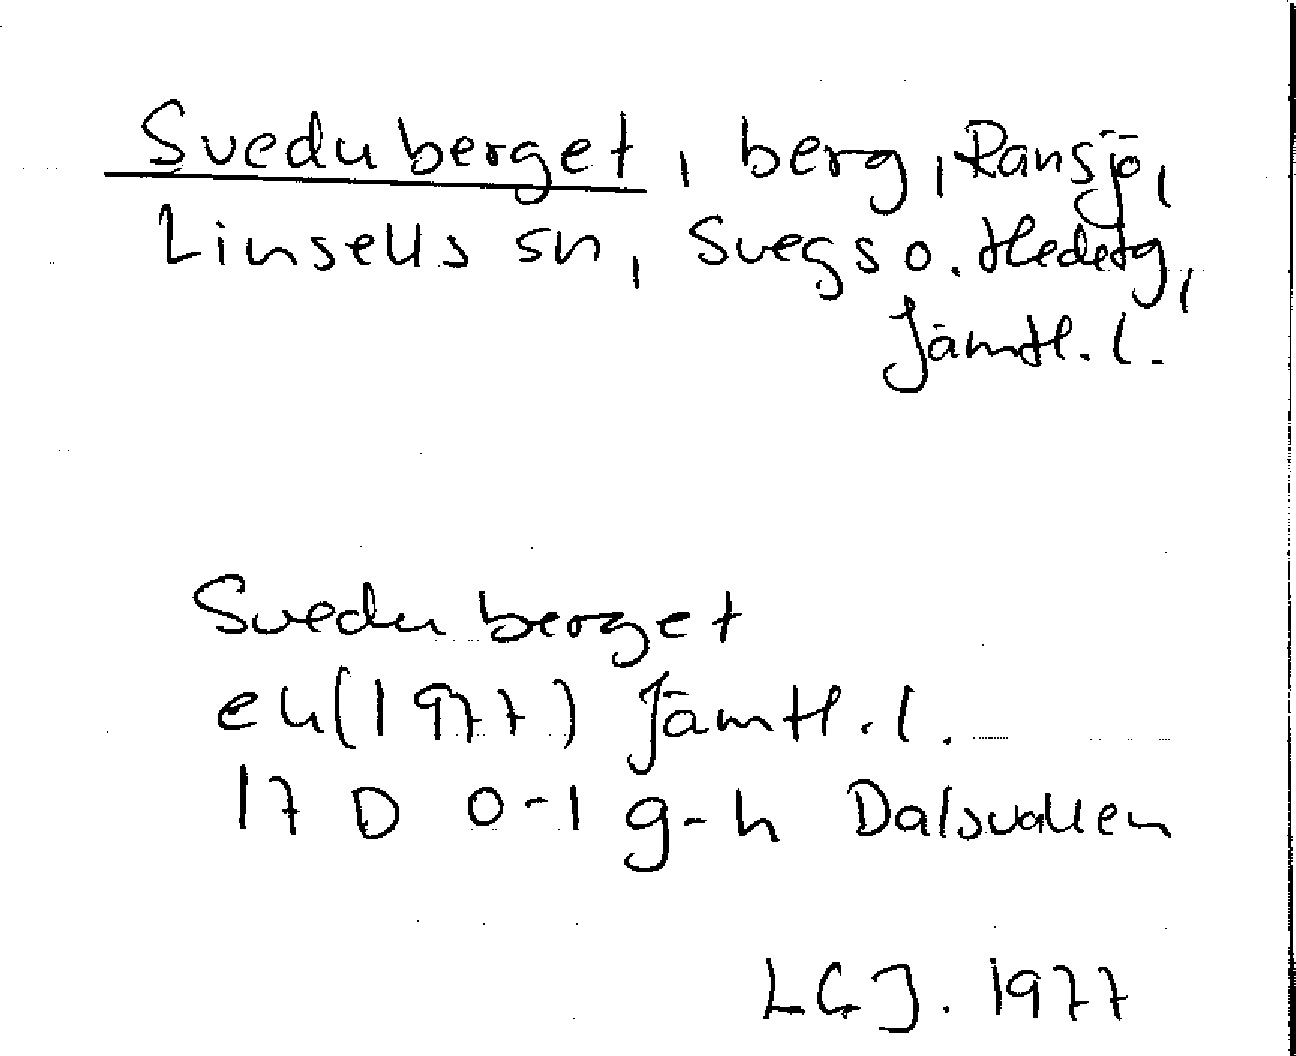 Sveduberget, berg, Ransjö,
Linsells sn, Svegs o. Hedetg,
Jämtl. l.
Sveduberget
ek(1977) Jämtl. l.
17 D 0-1 g-h Dalsvallen
LGJ. 1977